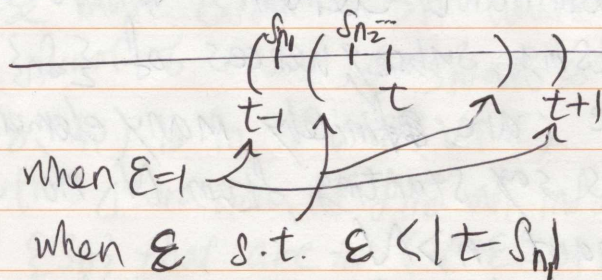 ( S_{n_1} ( S_{n_2} ... ) )
t-1 t t+1
when ε=1
when ε s.t. ε < |t - S_{n_1}|